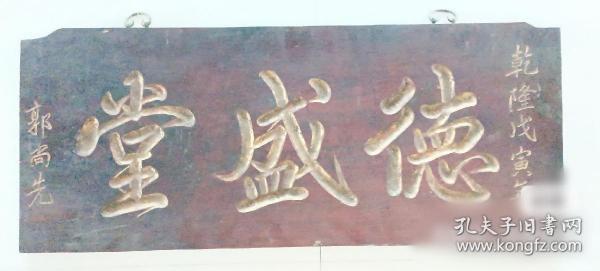 乾隆戊寅年
德盛堂
郭尚先
孔夫子旧书网
www.kongfz.com